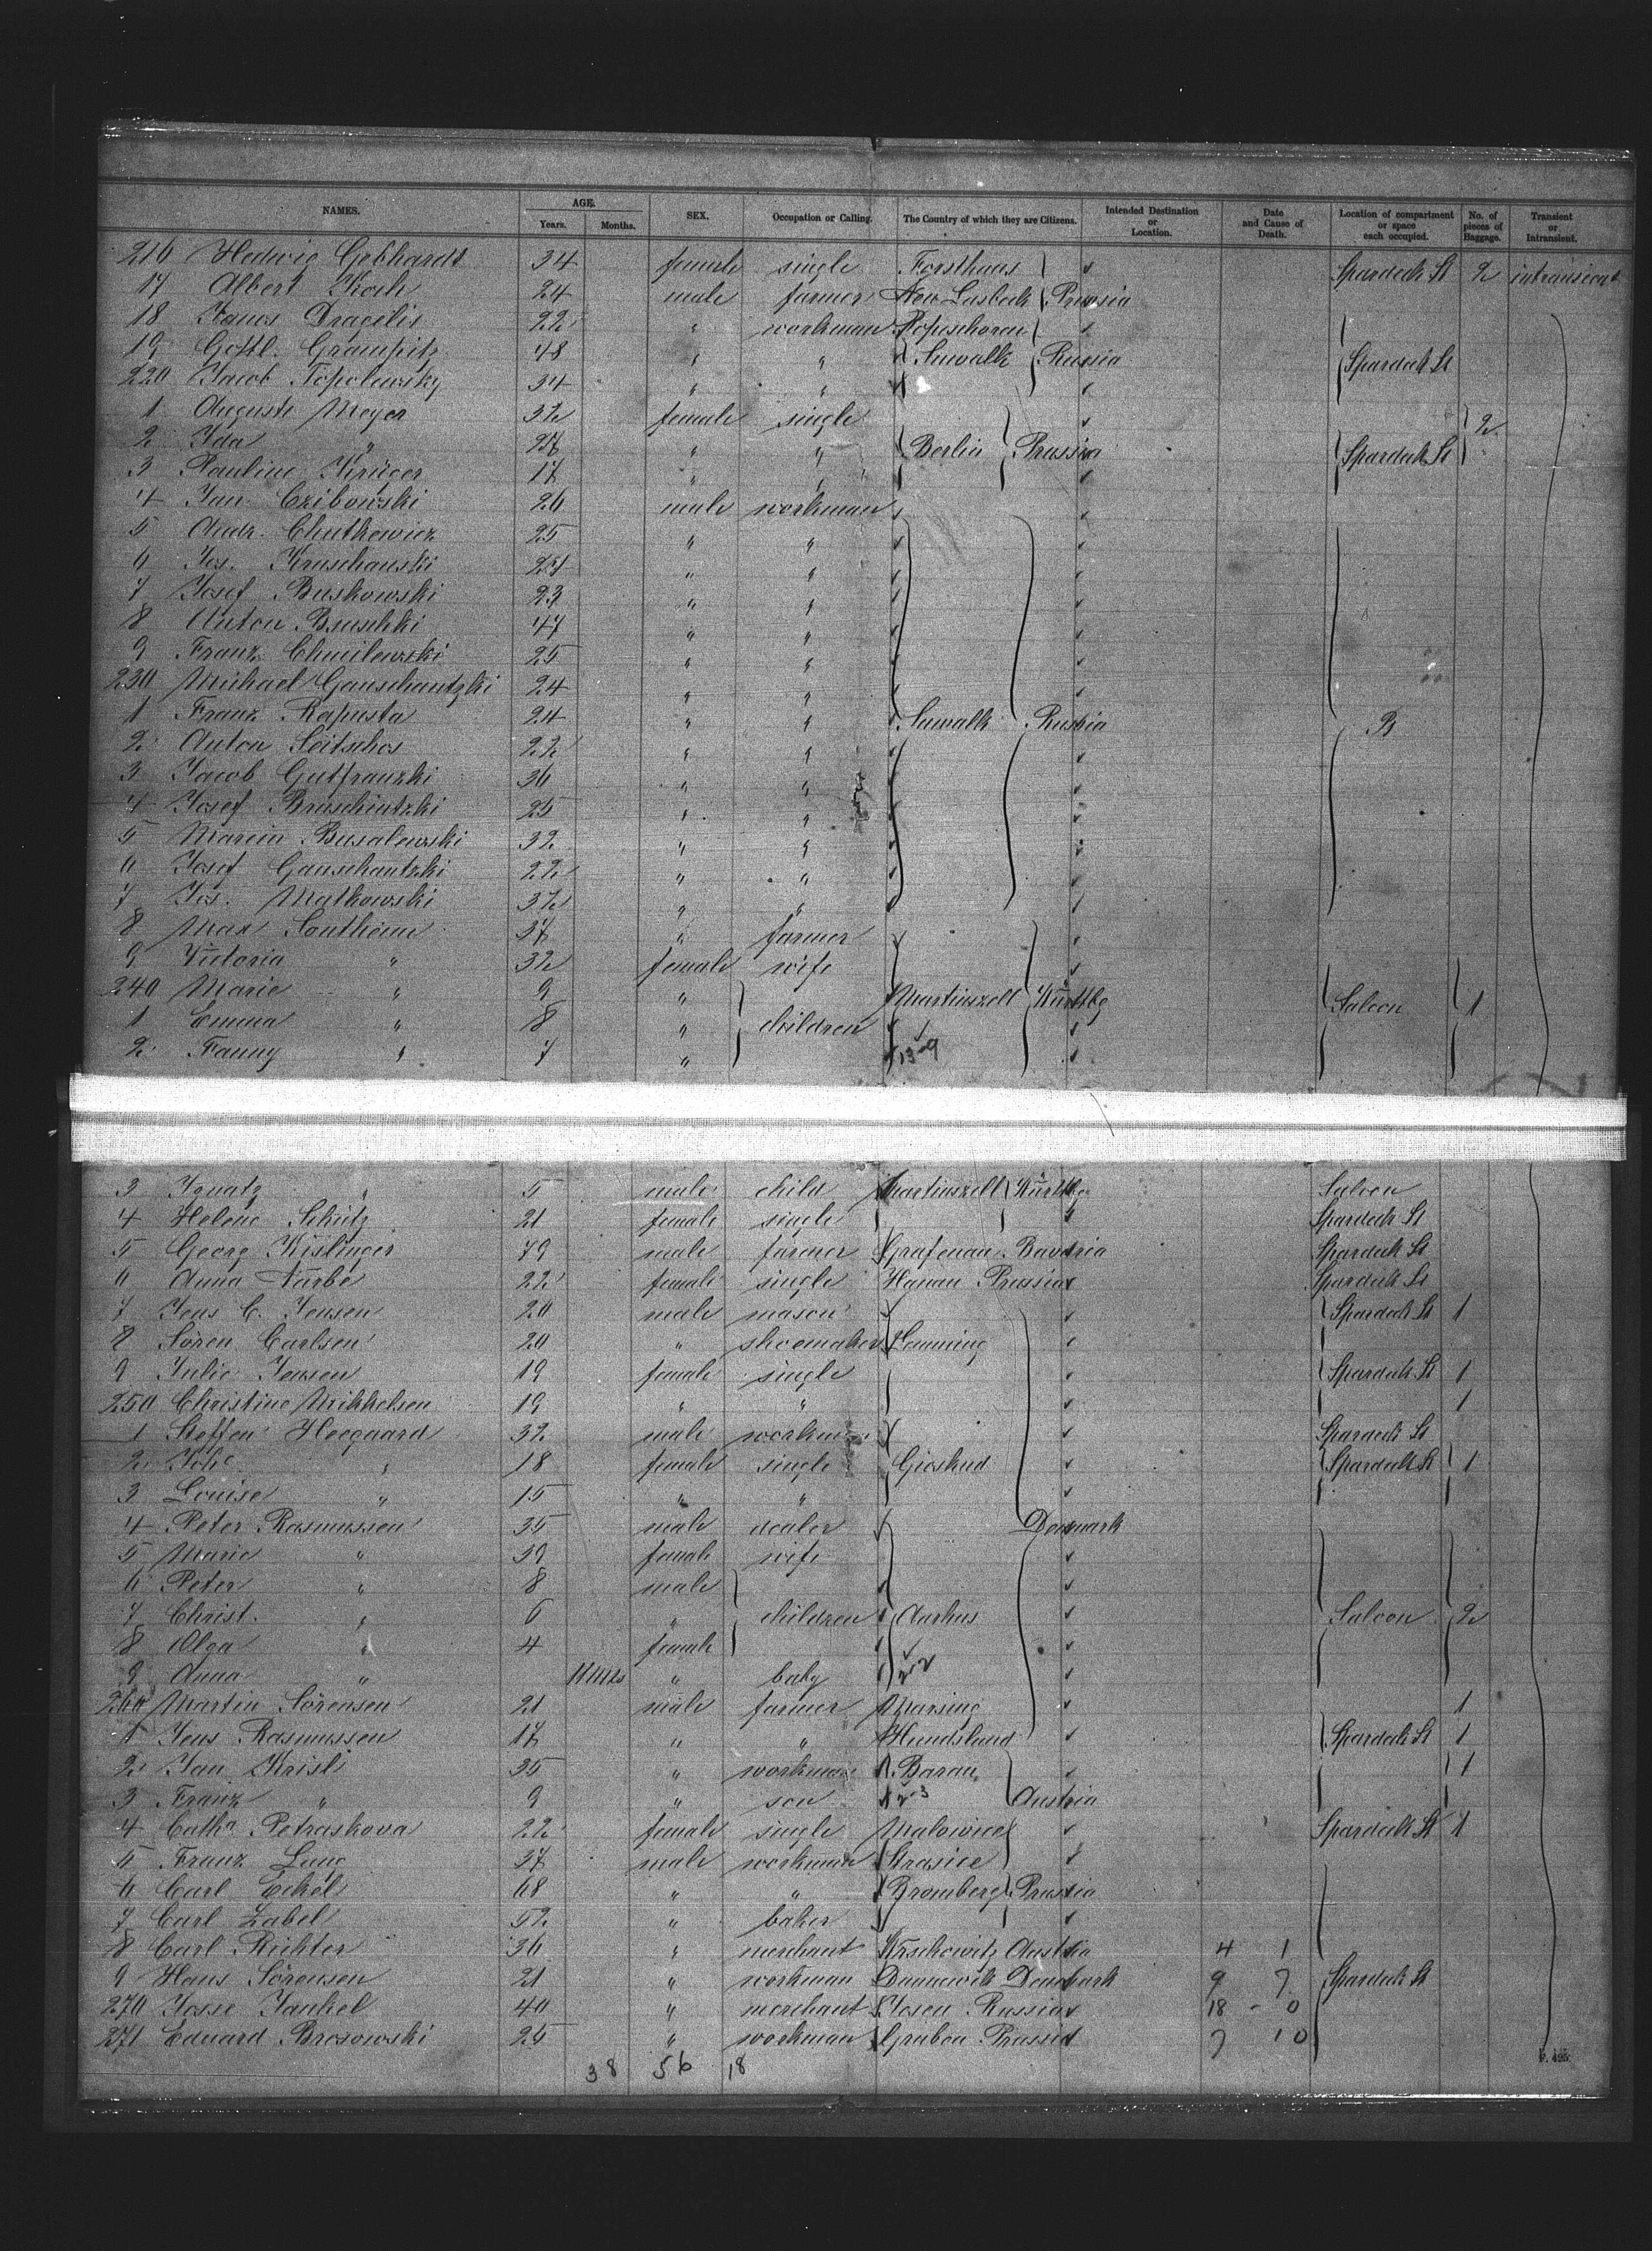 NAMES. AGE. Years. Months. SEX. Occupation or Calling. The Country of which they are Citizens. Intended Destination or Location. Date and Cause of Death. Location of compartment or space each occupied. No. of pieces of Baggage. Transient or Intransient.
216 Hedwig Gebhardt 34 female single Forsthaus Spardeck St 2 intransient
17 Albert Koch 24 male farmer New Lasbeck Prussia
18 Dragelis 22 " workman
19 Gottl. Grampitz 48 " " Suwalk Russia Spardeck St
220 Jacob Topolewsky 34 " "
1 Auguste Meyer 32 female single 2
2 Ida " 27 " " Berlin Prussia Spardeck St
3 Pauline Krüger 17 " "
4 Jan Czibowski 26 male workman
5 Andr. Chutkewicz 25 " "
6 Jos. Kruschauski 27 " "
7 Josef Buskowski 23 " "
8 Anton Bruschki 47 " "
9 Franz Chmilewski 25 " "
230 Michael Gauschantzki 24 " "
1 Franz Kapusta 24 " " Suwalk Russia
2 Anton Seitschos 22 " "
3 Jacob Gutfranzki 36 " "
4 Josef Bruschintzki 25 " "
5 Marcin Busalewski 32 " "
6 Josef Gauschantzki 22 " "
7 Jos. Matkowski 32 " "
8 Max Sontheim 37 " farmer
9 Victoria " 32 female wife
240 Marie " 9 " Martinszell Württbg Saloon 1
1 Emma " 8 " children
2 Fanny " 7 "
3 Ignatz " 5 male child Martinszell Württbg Saloon
4 Helene Schütz 21 female single Spardeck St
5 Georg Kislinger 79 male farmer Grafenau Bavaria Spardeck St
6 Anna Färbe 22 female single Hanau Prussia Spardeck St
7 Jens C. Jensen 20 male mason Spardeck St 1
8 Sören Carlsen 20 " shoemaker Hemming
9 Julie Jensen 19 female single Spardeck St 1
250 Christine Mikkelsen 19 " " 1
1 Steffen Heegaard 32 male workman Spardeck St
2 Johe " 18 female single Gieskud Spardeck St 1
3 Louise " 15 " "
4 Peter Rasmussen 35 male dealer Denmark
5 Marie " 39 female wife
6 Peter " 8 male
7 Christ. " 6 " children Aarhus Saloon 2
8 Olga " 4 female
9 Anna " 11 Mts " baby
260 Martin Sörensen 21 male farmer Marsing 1
1 Jens Rasmussen 17 " " Hundslund Spardeck St 1
2 Jan Krisli 35 " workman Barau 1
3 Franz " 9 " son Austria
4 Catha Petraskova 22 female single Malowice Spardeck St 1
5 Franz Lang 37 male workman Strasice
6 Carl Eckel 68 " " Bromberg Prussia
7 Carl Zabel 52 " baker
8 Carl Richter 36 " merchant Austria 4 1
9 Hans Sörensen 21 " workman Dannewitt Denmark 9 7 Spardeck St
270 Josse Jankel 40 " merchant Josen Russia 18 - 0
271 Eduard Brosowski 25 " workman Gruben Prussia 7 10
38 56 18